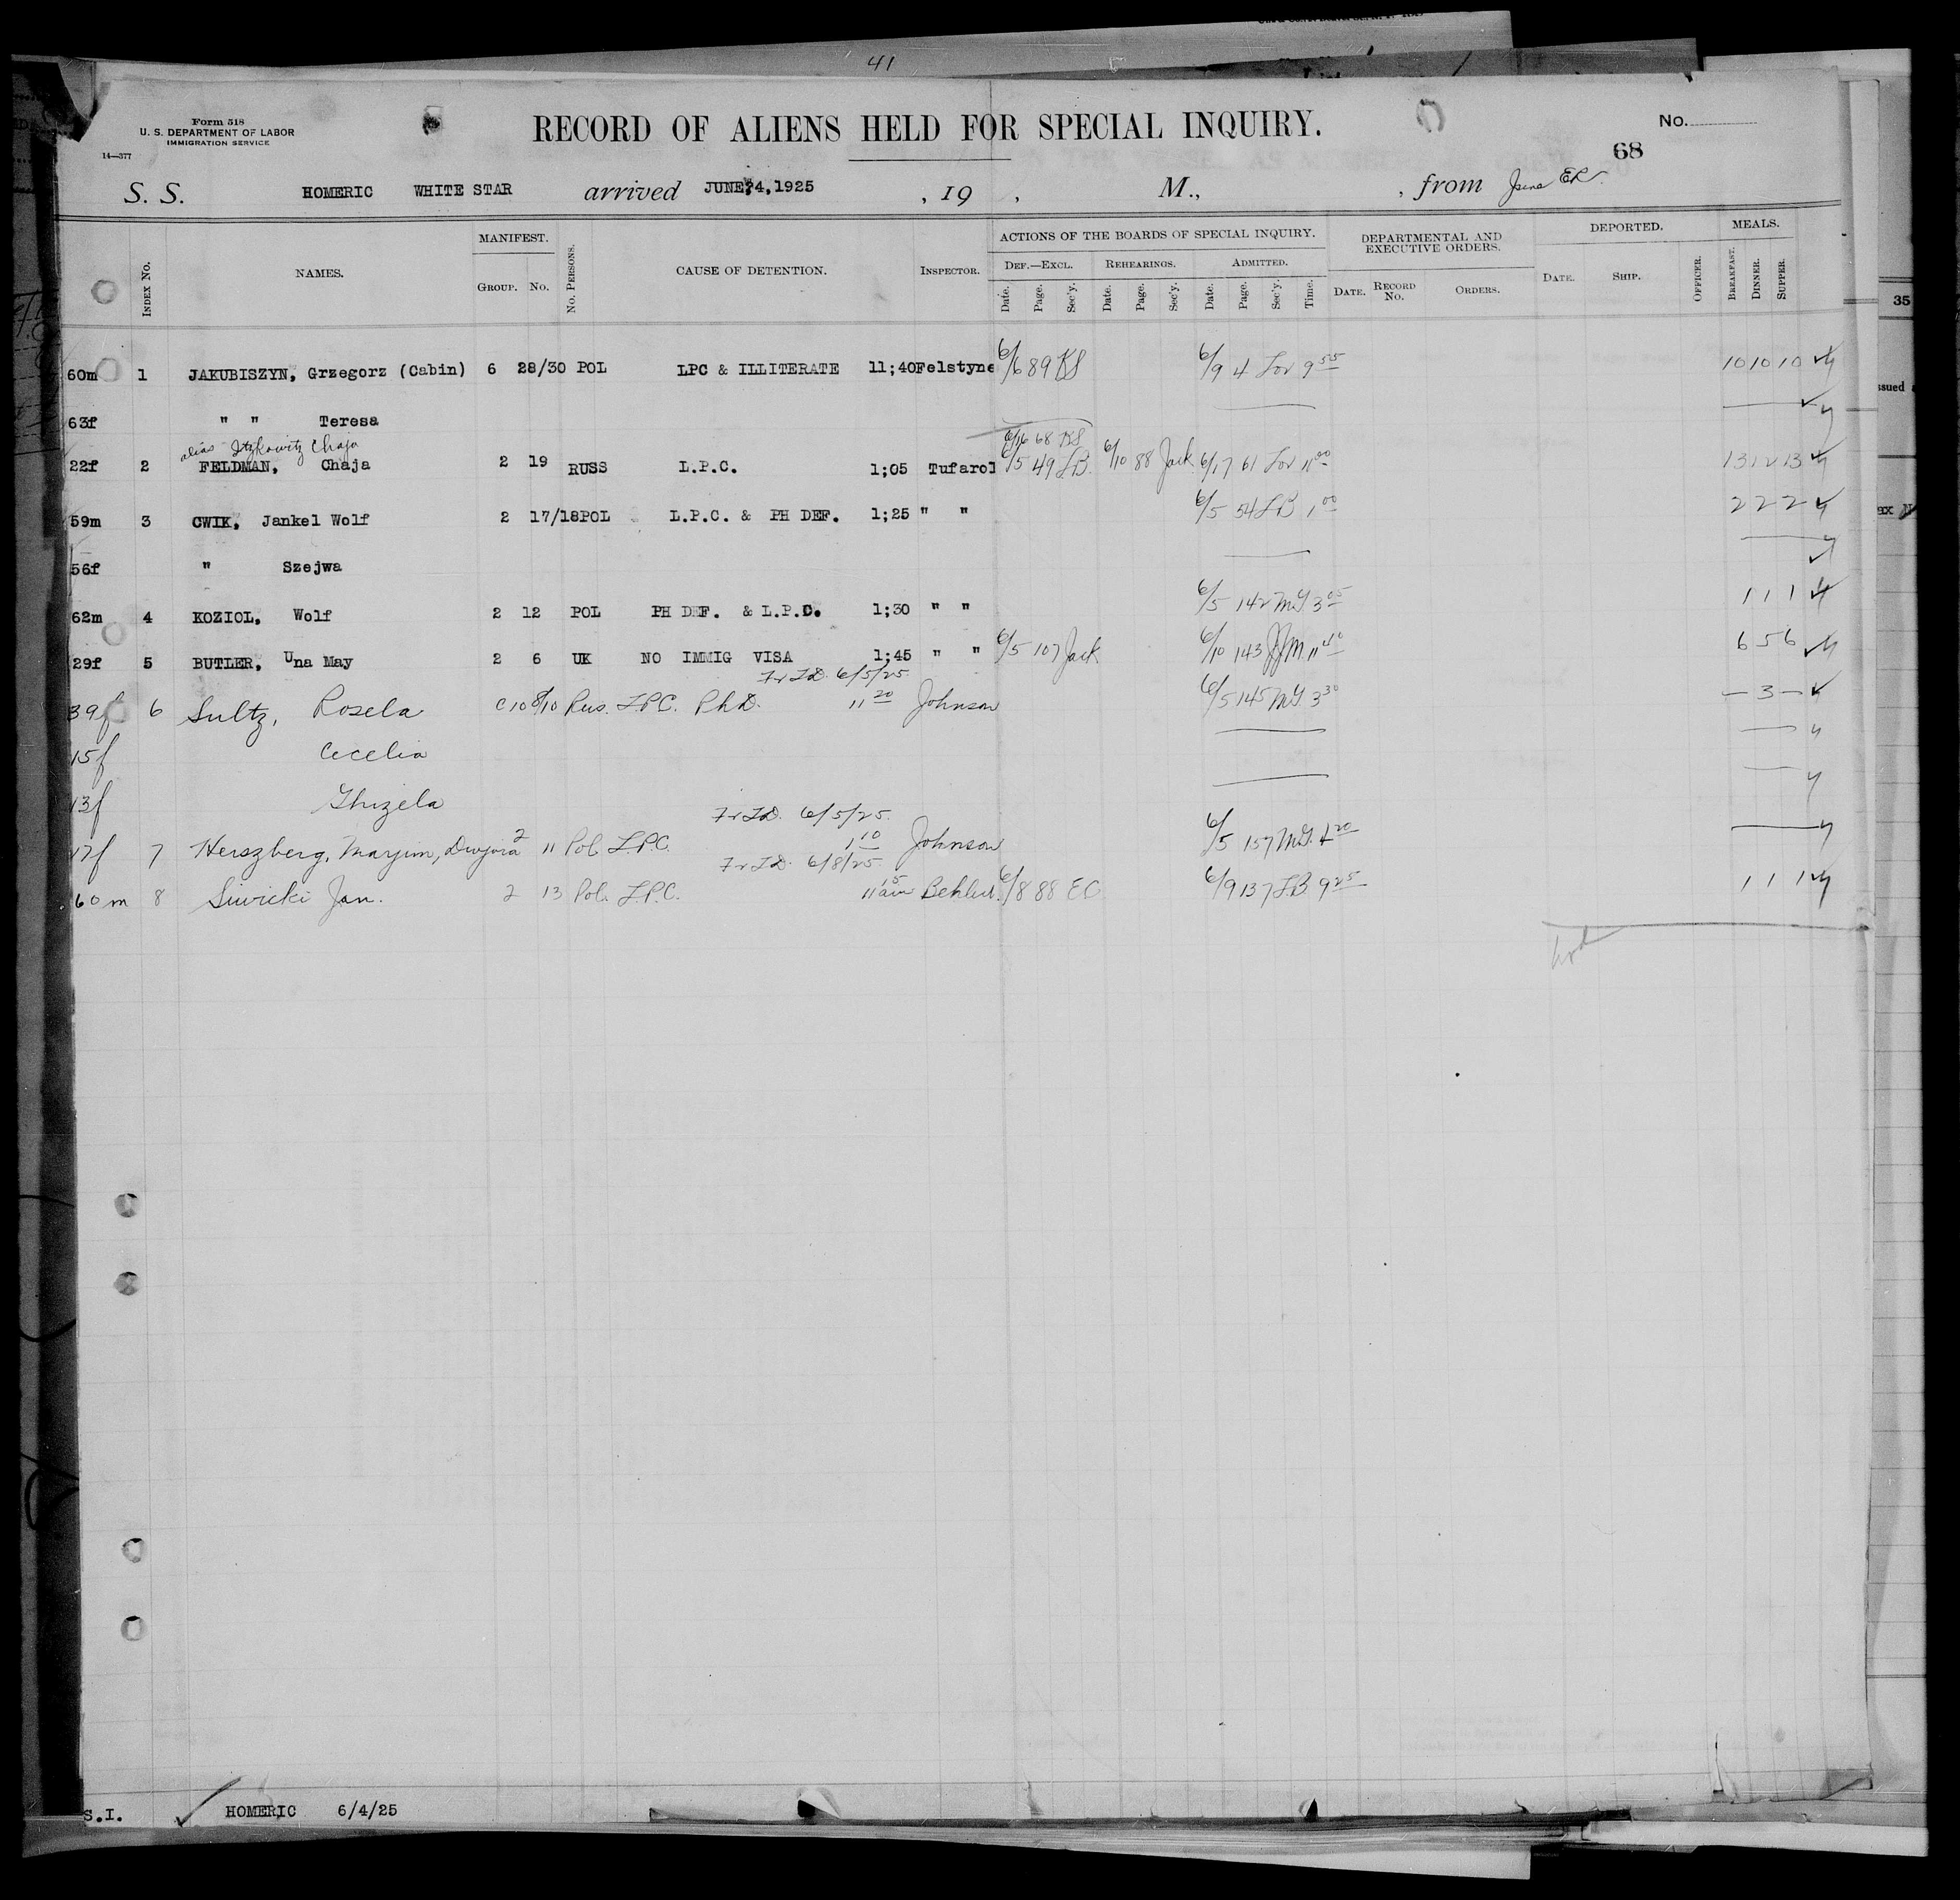 41
Form 518
U. S. DEPARTMENT OF LABOR
IMMIGRATION SERVICE
14—377
RECORD OF ALIENS HELD FOR SPECIAL INQUIRY.
No.
68
S. S. HOMERIC WHITE STAR arrived JUNE 4, 1925 , 19 , M., , from
MANIFEST. ACTIONS OF THE BOARDS OF SPECIAL INQUIRY. DEPARTMENTAL AND EXECUTIVE ORDERS. DEPORTED. MEALS.
INDEX No. NAMES. GROUP. No. No. PERSONS. CAUSE OF DETENTION. INSPECTOR. DEF.—EXCL. REHEARINGS. ADMITTED.
Date. Page. Sec'y. Date. Page. Sec'y. Date. Page. Sec'y. Time. DATE. RECORD No. ORDERS. DATE. SHIP. OFFICER. BREAKFAST. DINNER. SUPPER.
35
60m 1 JAKUBISZYN, Grzegorz (Cabin) 6 28/30 POL LPC & ILLITERATE 11;40 Felstyne 6/6 89 KS 6/9 4 Lov 9 55 10 10 10
ssued
63f " " Teresa
alias Itzkowitz Chaja 6/16 68 KS
22f 2 FELDMAN, Chaja 2 19 RUSS L.P.C. 1;05 Tufarol 6/5 49 LB. 6/10 88 Jack 6/17 61 Lov 11 00 13 12 13
59m 3 CWIK, Jankel Wolf 2 17/18 POL L.P.C. & PH DEF. 1;25 " " 6/5 54 LB 1 00 2 2 2
56f " Szejwa
62m 4 KOZIOL, Wolf 2 12 POL PH DEF. & L.P.C. 1;30 " " 6/5 142 MG 3 05 1 1 1
29f 5 BUTLER, Una May 2 6 UK NO IMMIG VISA 1;45 " " 6/5 107 Jack 6/10 143 JJM 11 40 6 5 6
Fr TD. 6/5/25
39f 6 Sultz, Rosela C10 8/10 Rus. LPC. PhD. 11 20 Johnson 6/5 145 MG 3 30 — 3 —
15f Cecelia
13f Ghizela
Fr TD. 6/5/25.
17f 7 Herszberg, Marjim, Dwojra 2 11 Pol. LPC. 1 10 Johnson 6/5 157 MG. 4 20
Fr TD. 6/8/25.
60m 8 Siwicki Jan. 2 13 Pol. LPC. 11 15 am 6/8 88 EC 6/9 137 LB. 9 25 1 1 1
S.I. HOMERIC 6/4/25